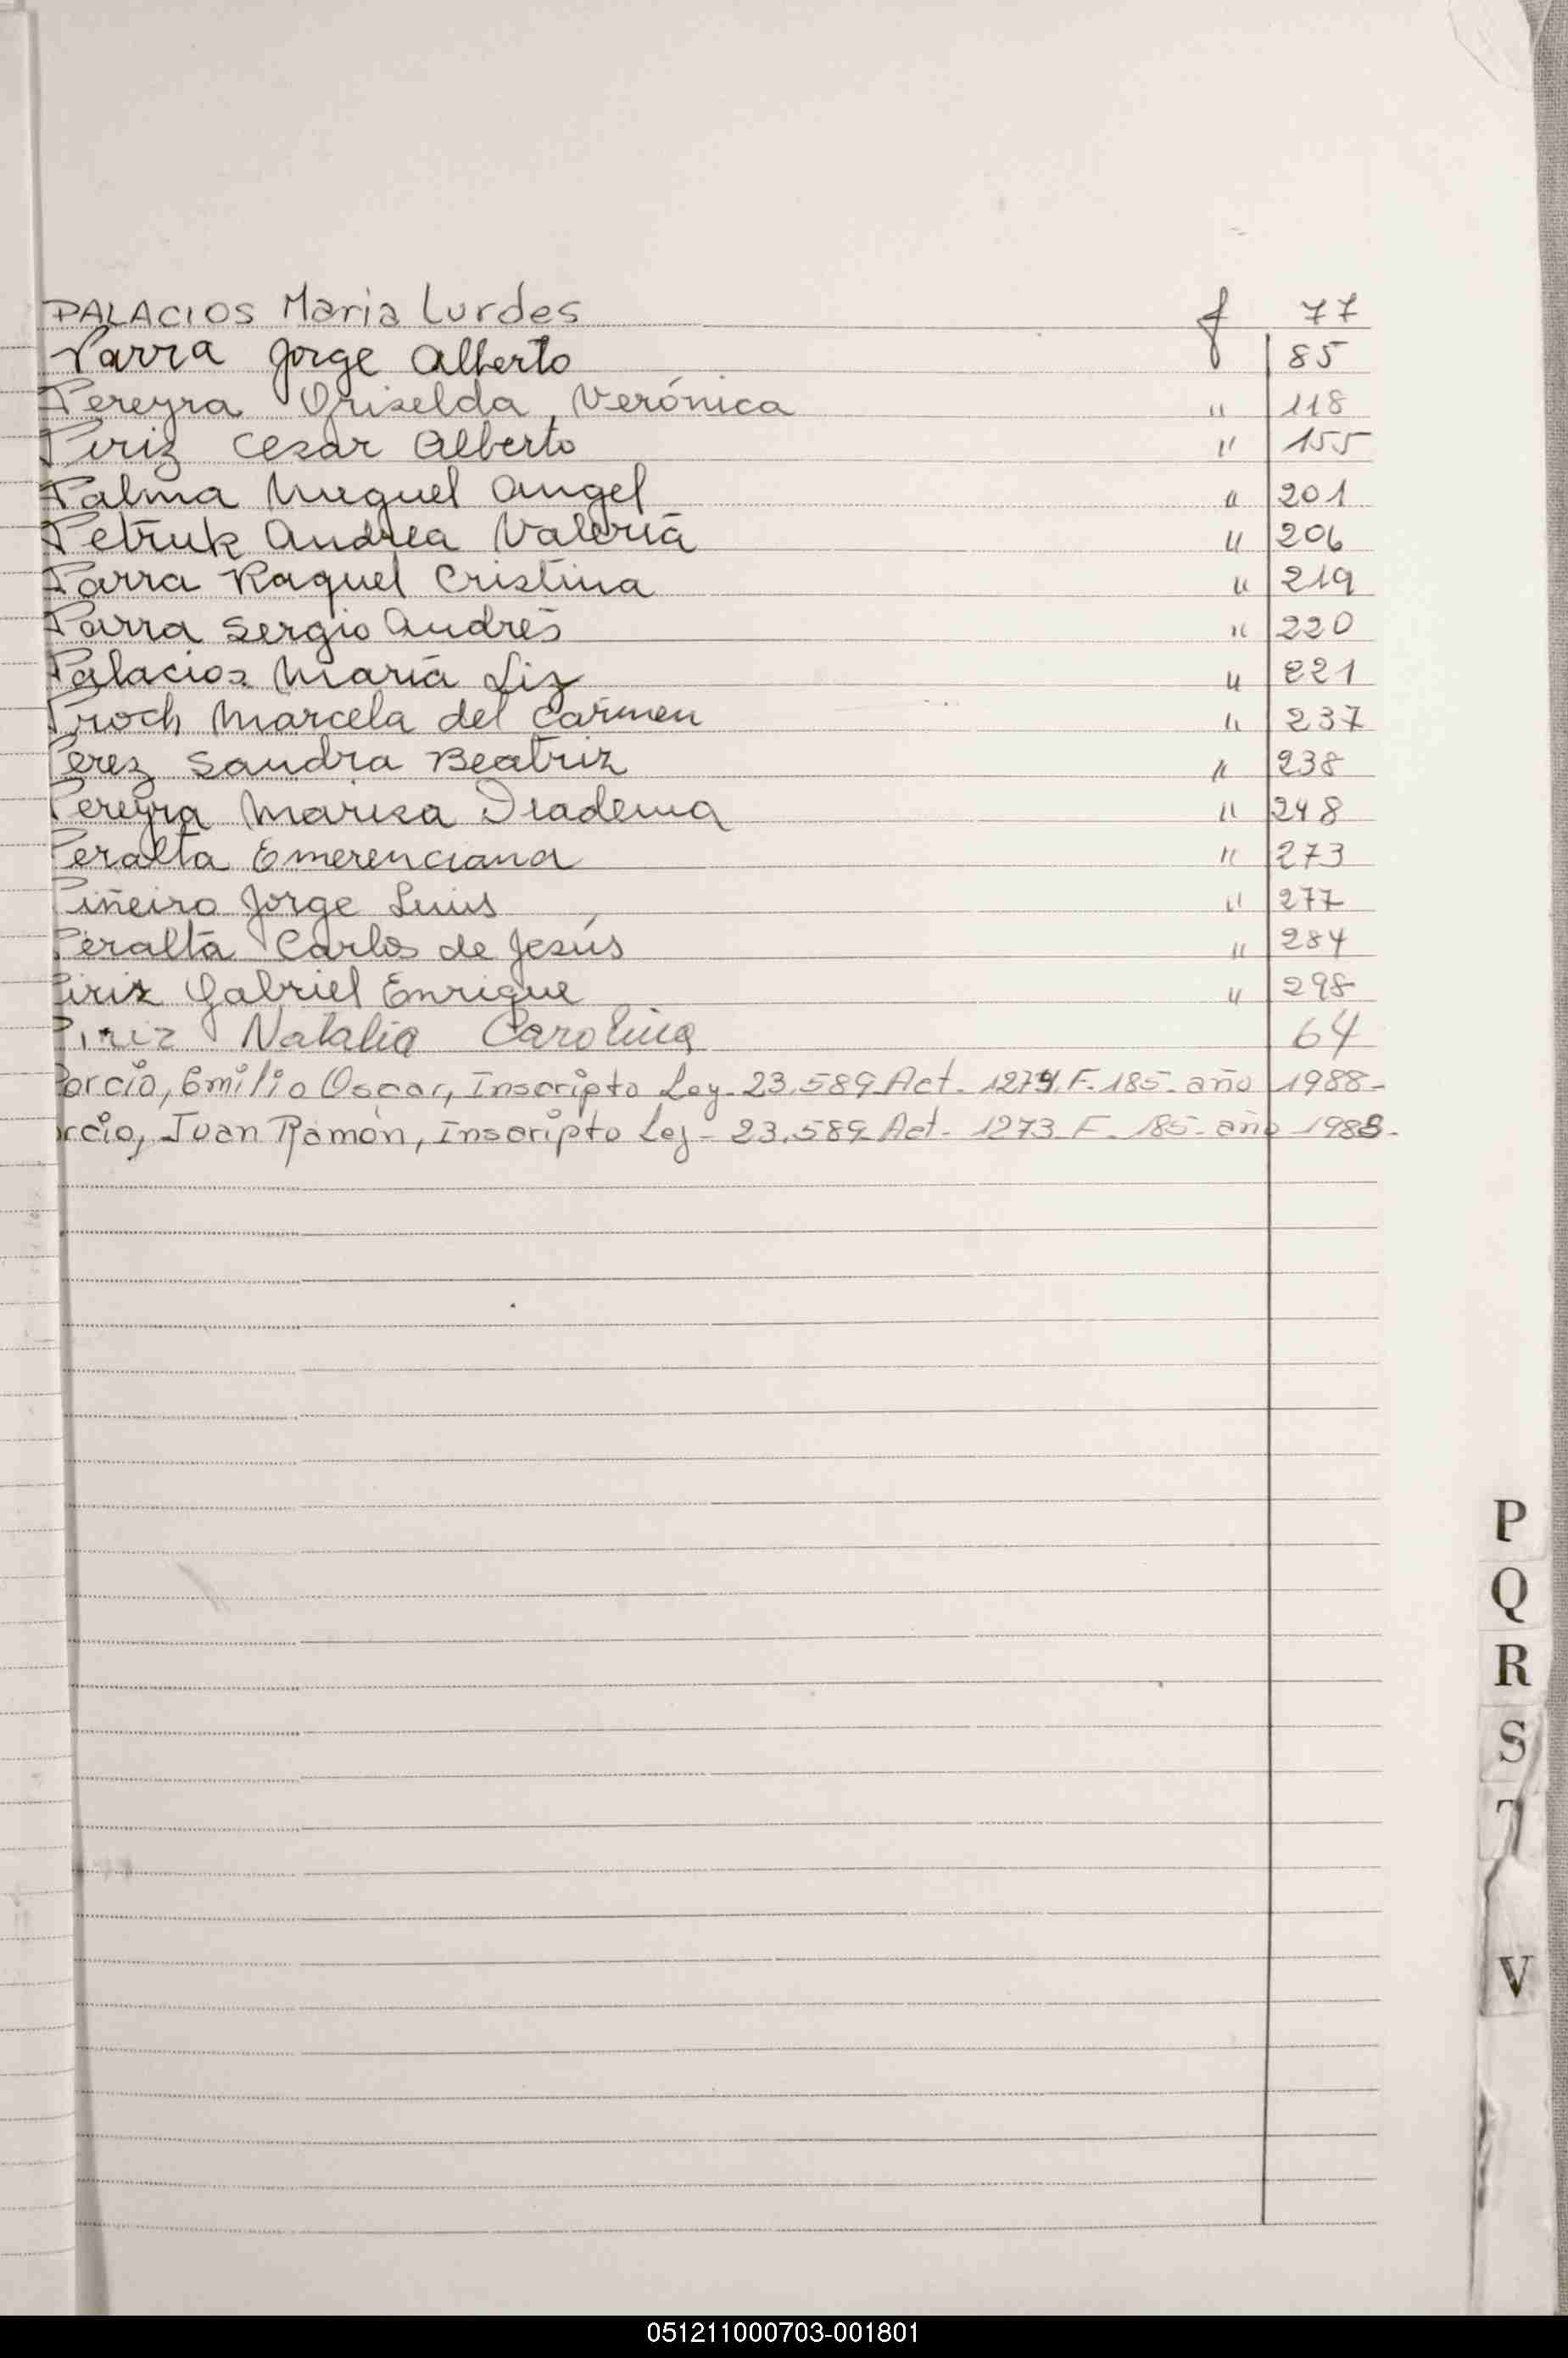 PALACIOS Maria Lurdes f 77
Parra Jorge Alberto 85
Pereyra Griselda Verónica " 118
Piriz Cesar Alberto " 155
Palma Miguel Angel " 201
Petruk Andrea Valeria " 206
Parra Raquel Cristina " 219
Parra Sergio Andrés " 220
Palacios María Liz " 221
Proch Marcela del Carmen " 237
Perez Sandra Beatriz " 238
Pereyra Marisa Diadema " 248
Peralta Emerenciana " 273
Piñeiro Jorge Luis " 277
Peralta Carlos de Jesús " 284
Piriz Gabriel Enrique " 298
Piriz Natalia Carolina 64
Porcio, Emilio Oscar, Inscripto Ley-23.589 Act. 1274 F. 185. año 1988-
orcio, Juan Ramón, Inscripto Ley- 23.589 Act- 1273 F. 185- año 1988-
P
Q
R
S
T
V
051211000703-001801